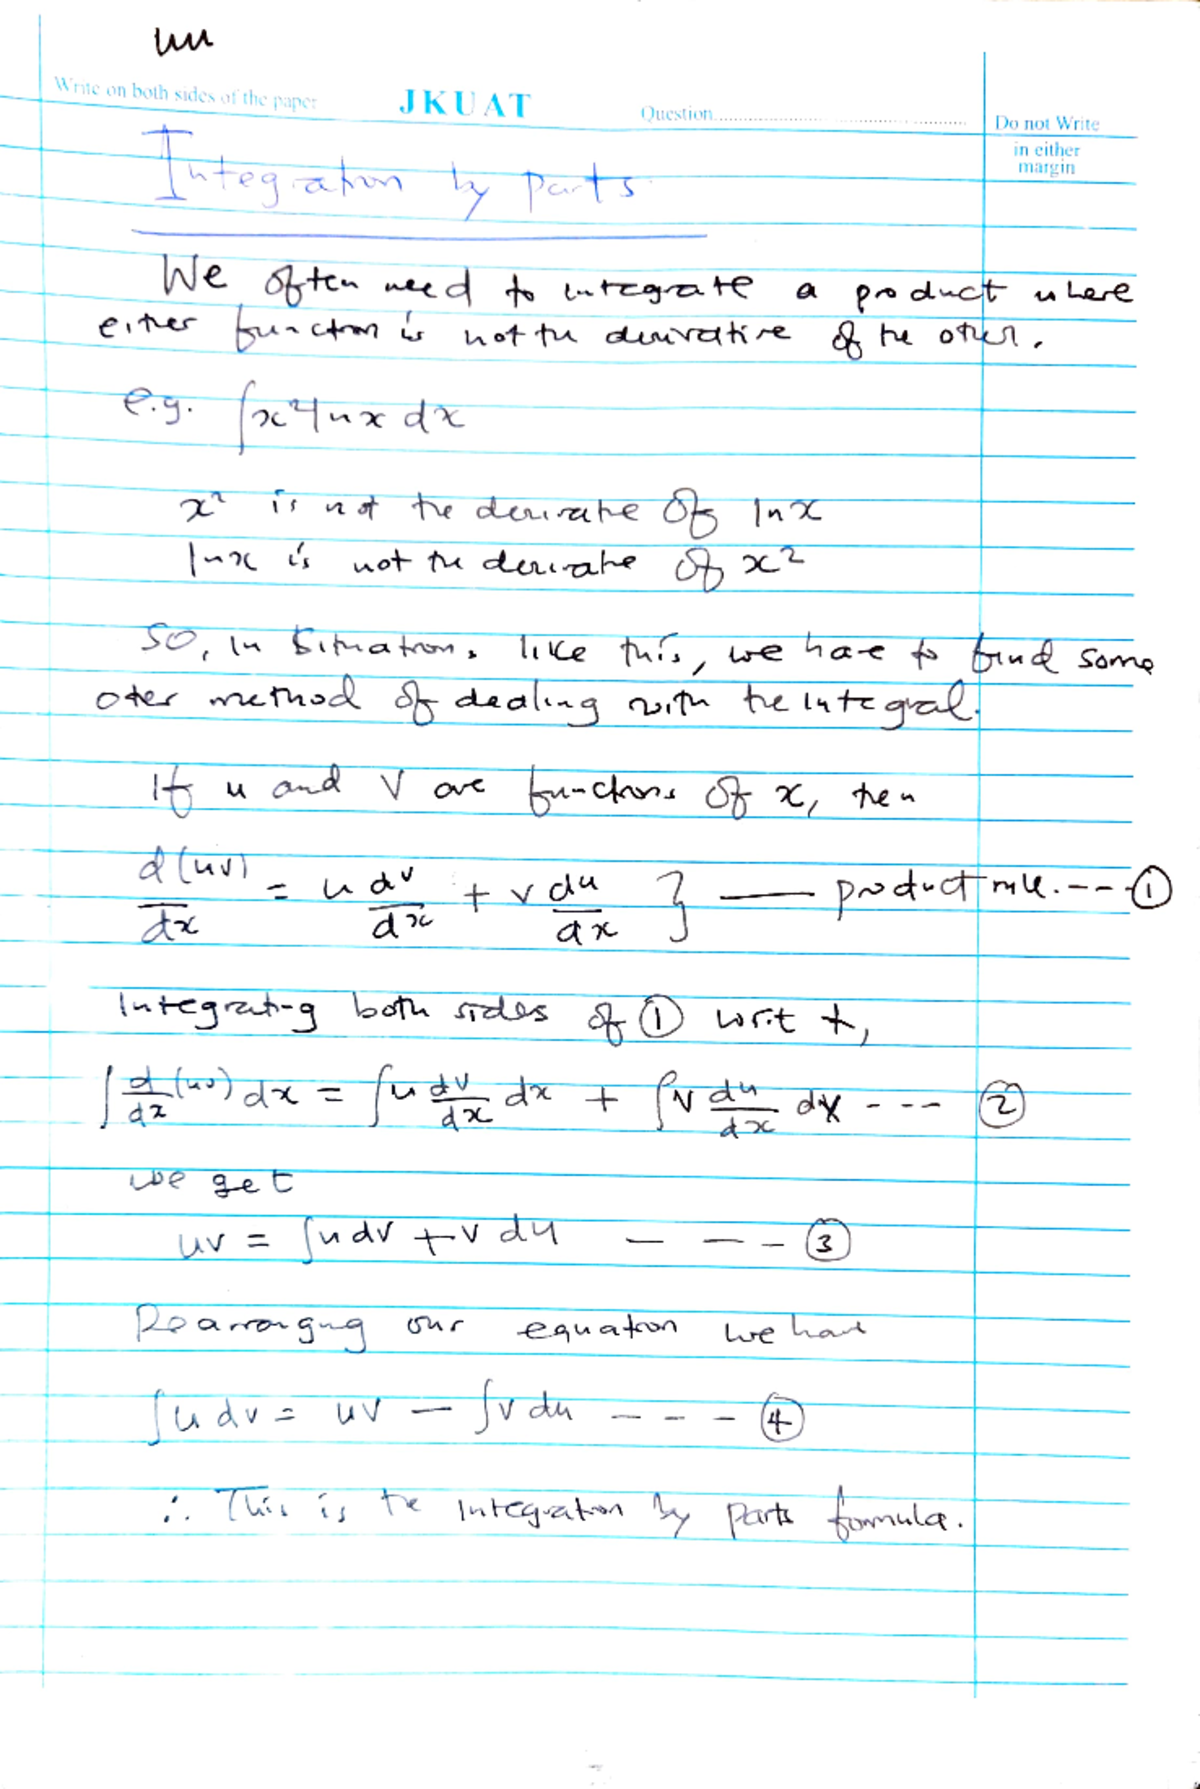 Write on both sides of the paper JKUAT Question
Do not Write
in either
margin
Integration by parts
We often need to integrate a product where
either function is not the derivative of the other.
e.g. ∫x² ln x dx
x² is not the derivative of ln x
ln x is not the derivative of x²
So, in situations like this, we have to find some
other method of dealing with the integral.
If u and v are functions of x, then
d(uv)/dx = u dv/dx + v du/dx } — product rule. --- ①
Integrating both sides of ①
∫ d/dx (uv) dx = ∫u dv/dx dx + ∫v du/dx dx - - - - ②
we get
uv = ∫u dv + v du - - - ③
Rearranging our equation we have
∫u dv = uv − ∫v du - - - - ④
∴ This is the Integration by parts formula.